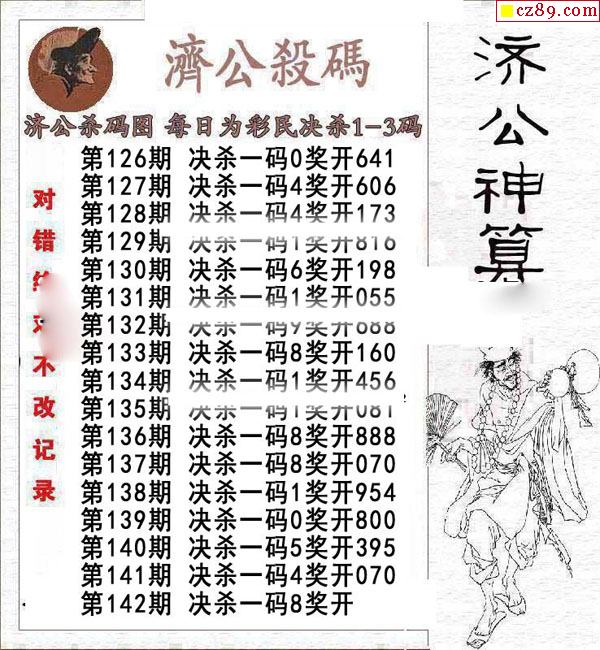 cz89.com
濟公殺碼
济公杀码图 每日为彩民决杀1-3码
第126期 决杀一码0奖开641
第127期 决杀一码4奖开606
第128期 决杀一码4奖开173
第129期 决杀一码1奖开816
第130期 决杀一码6奖开198
第131期 决杀一码1奖开055
第132期 决杀一码9奖开688
第133期 决杀一码8奖开160
第134期 决杀一码1奖开456
第135期 决杀一码1奖开081
第136期 决杀一码8奖开888
第137期 决杀一码8奖开070
第138期 决杀一码1奖开954
第139期 决杀一码0奖开800
第140期 决杀一码5奖开395
第141期 决杀一码4奖开070
第142期 决杀一码8奖开
对错 不改记录
济公神算